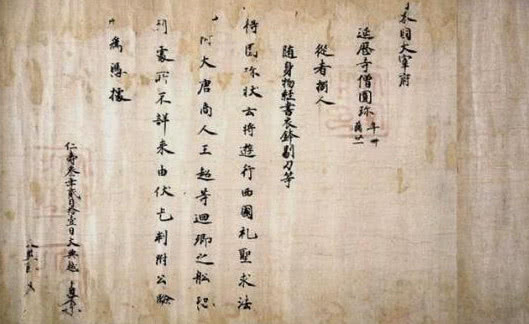 本國大宰府
延暦寺僧圓珎 年卌 臈廿一
從者捌人
随身物經書衣鉢剔刀等
得圓珎状云将遊行西國礼聖求法
附大唐商人王超等廻郷之舩恐
到處所不詳来由伏乞判附公驗
以為憑據
仁壽叁年貳月拾壹日大典越